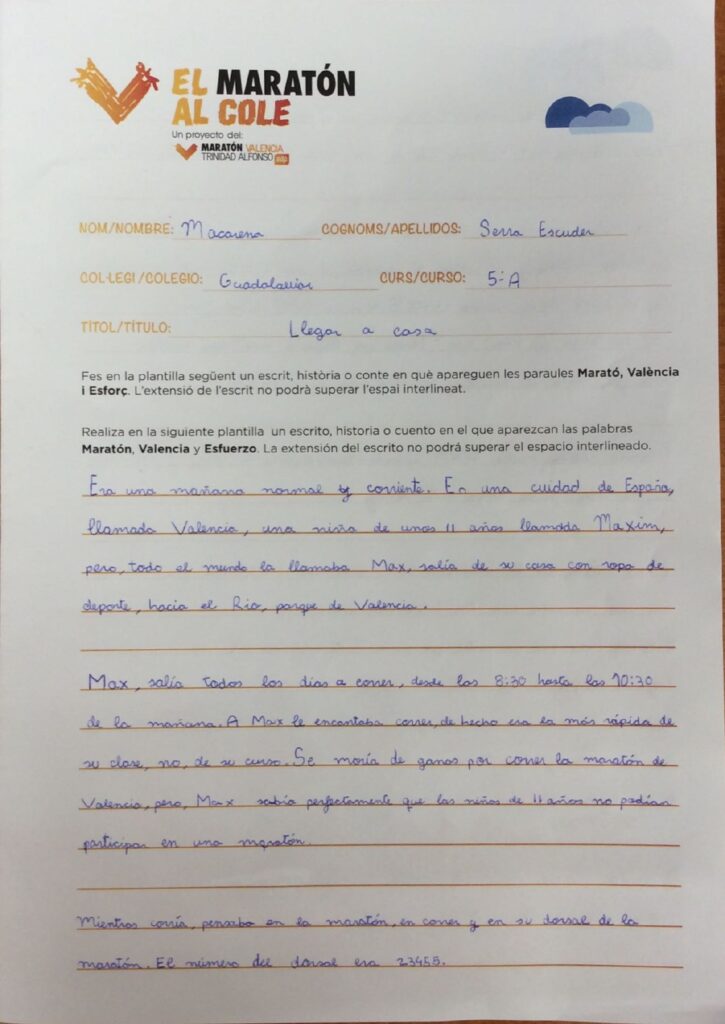 EL MARATÓN
AL COLE
Un proyecto del:
MARATÓN VALENCIA
TRINIDAD ALFONSO edp
NOM/NOMBRE: Macarena COGNOMS/APELLIDOS: Serra Escuder
COL·LEGI/COLEGIO: Guadalaviar CURS/CURSO: 5ºA
TÍTOL/TÍTULO: Llegar a casa
Fes en la plantilla següent un escrit, història o conte en què apareguen les paraules Marató, València
i Esforç. L'extensió de l'escrit no podrà superar l'espai interlineat.
Realiza en la siguiente plantilla un escrito, historia o cuento en el que aparezcan las palabras
Maratón, Valencia y Esfuerzo. La extensión del escrito no podrá superar el espacio interlineado.
Era una mañana normal y corriente. En una cuidad de España,
llamada Valencia, una niña de unos 11 años llamada Maxim,
pero, todo el mundo la llamaba Max, salía de su casa con ropa de
deporte, hacia el Rio, parque de Valencia.
Max, salía todos los días a correr, desde las 8:30 hasta las 10:30
de la mañana. A Max le encantaba correr, de hecho era la más rápida de
su clase, no, de su curso. Se moría de ganas por correr la maratón de
Valencia, pero, Max sabía perfectamente que las niñas de 11 años no podían
participar en una maratón.
Mientras corría, pensaba en la maratón, en correr y en su dorsal de la
maratón. El número del dorsal era 23455.